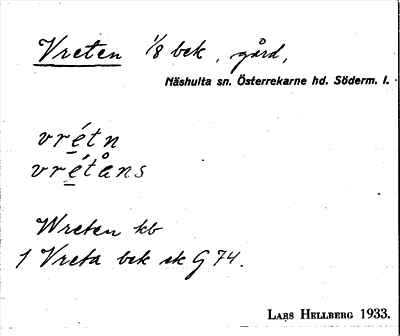 Vreten 1/8 bek, gård,
Näshulta sn. Österrekarne hd. Söderm. l.
vrétn
vrétåns
Wreten kb
1 Vreta bek sk G 74.
LARS HELLBERG 1933.